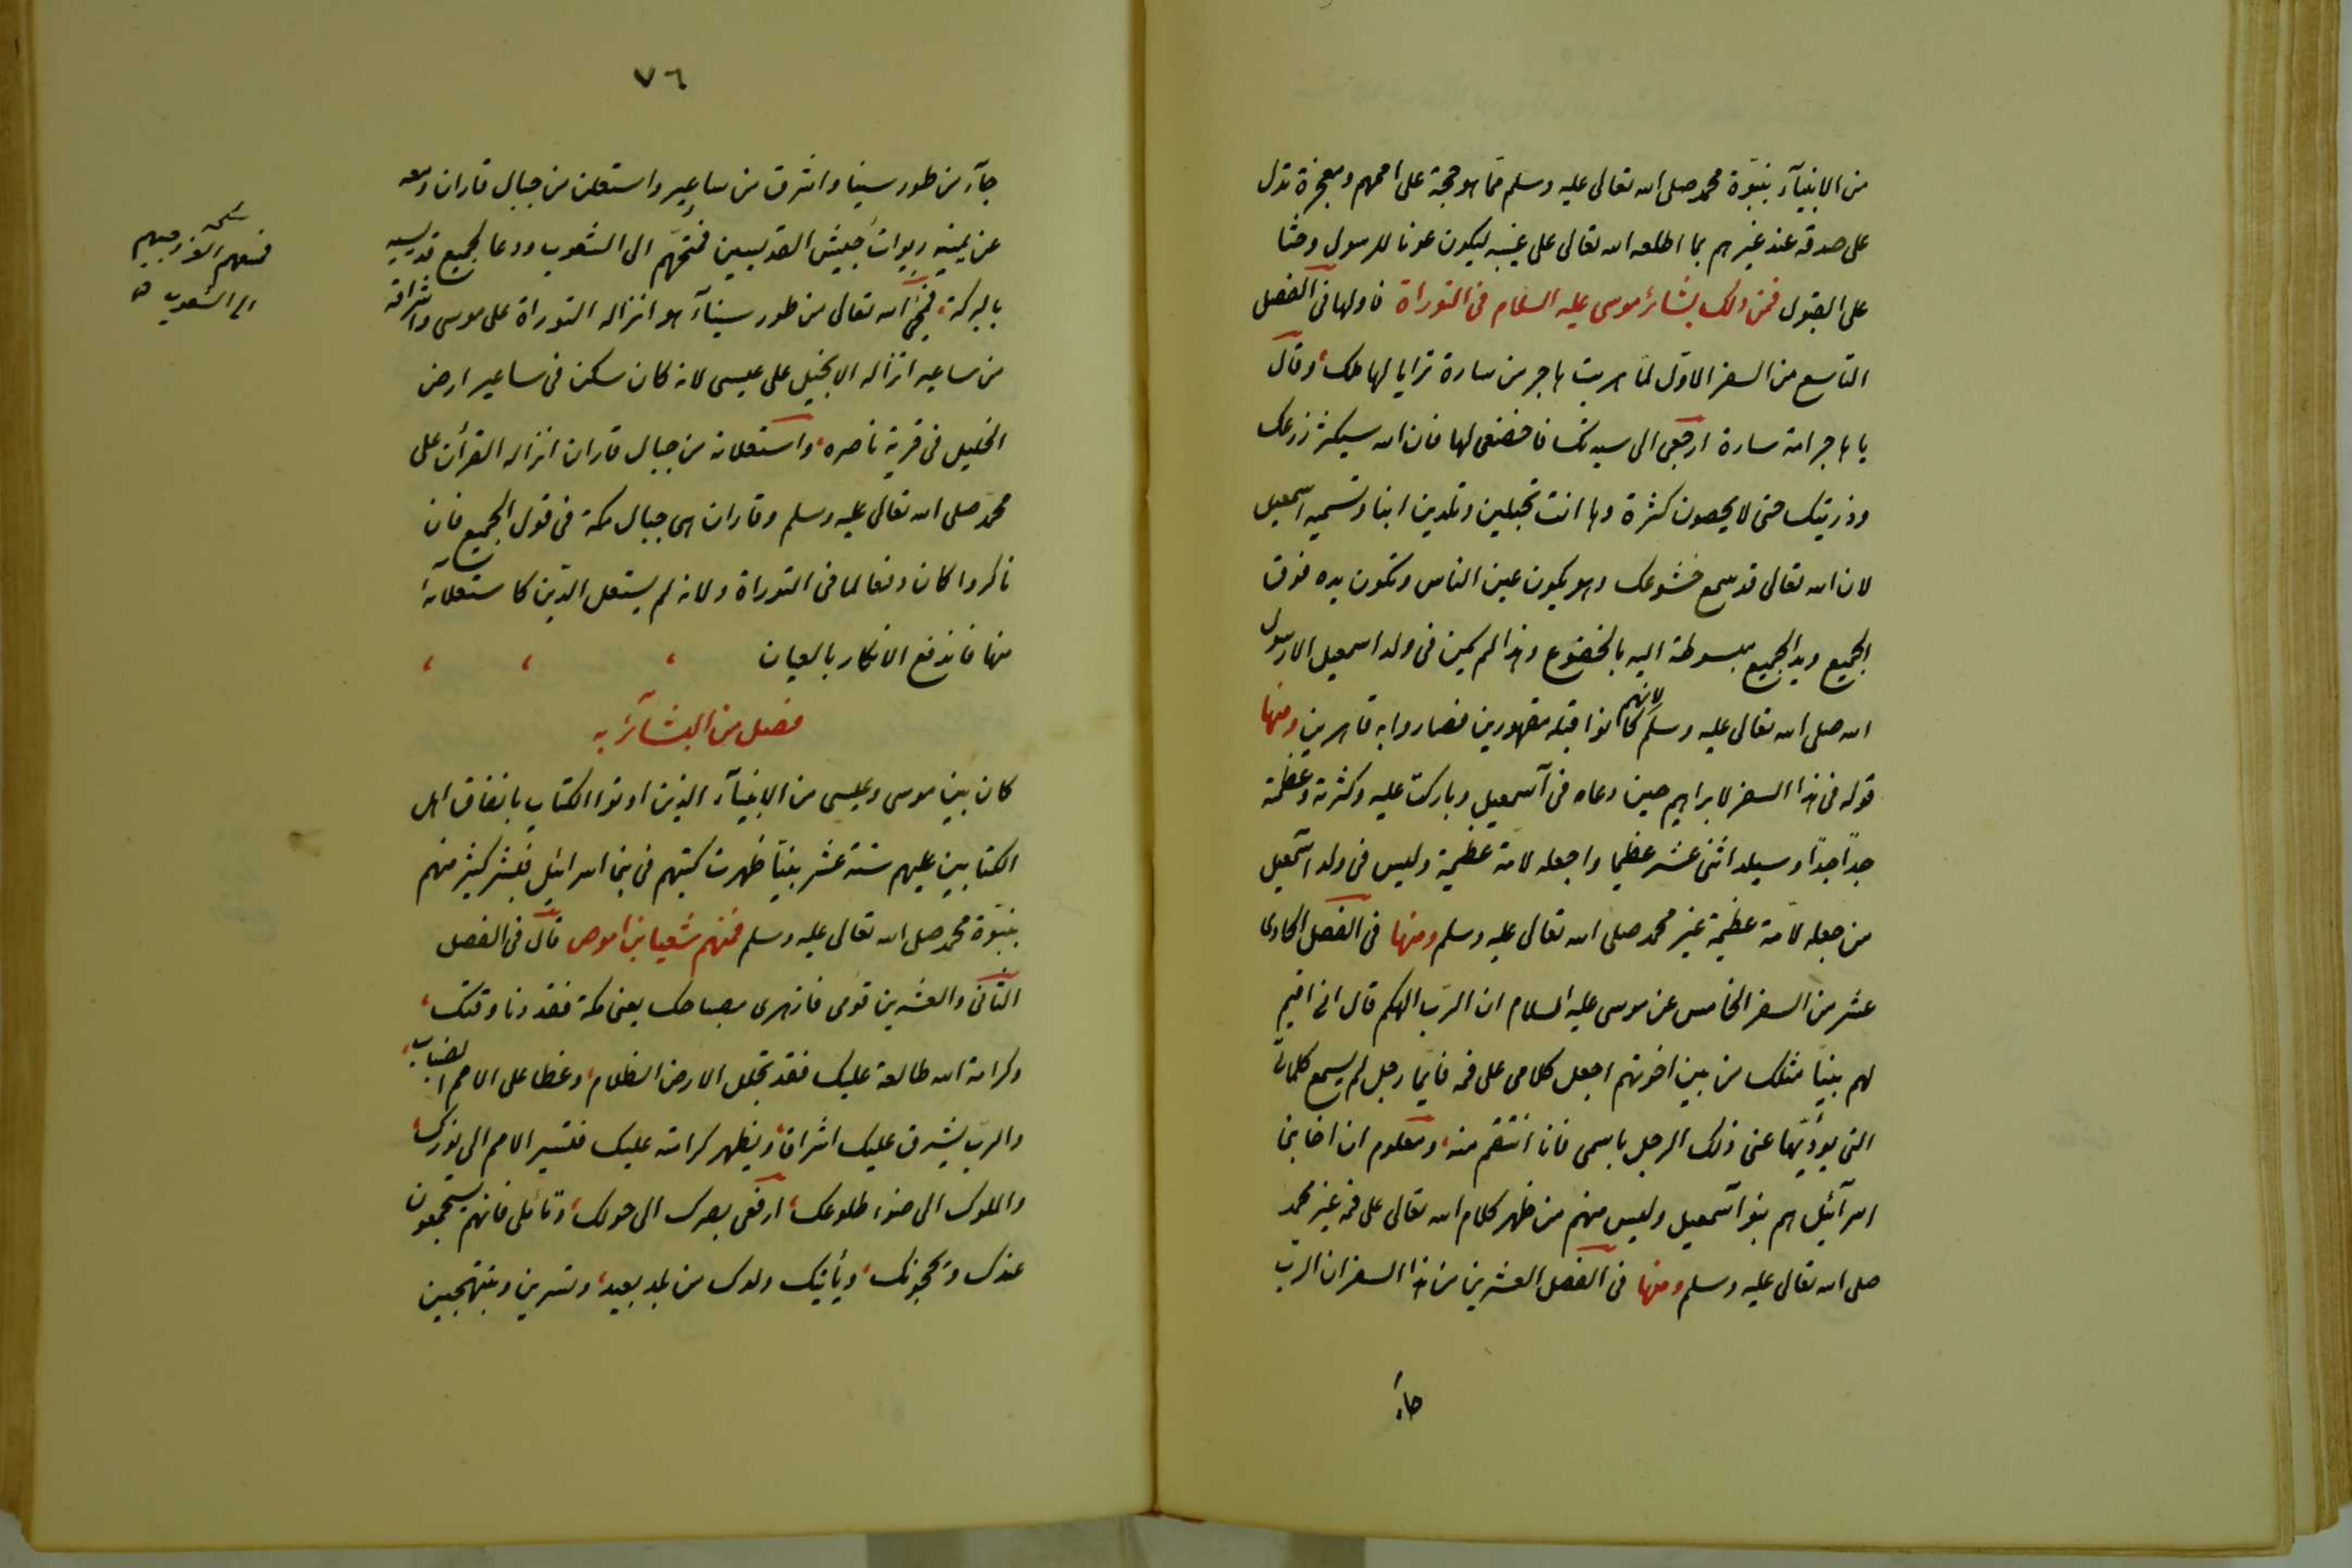 من الانبيآء بنبوّة محمد صلى الله تعالى عليه وسلم ممّا هو حجة على اممهم ومعجزة تدل
على صدقه عند غيرهم بما اطلعه الله تعالى على غيبه ليكون عونا للرسول وحثا
على القبول فمن ذلك بشائر موسى عليه السلام فى التوراة فاولها فى الفصل
التاسع من السفر الاوّل لمّا هربت هاجر من سارة ترايا لها ملك وقال
يا هاجر امة سارة ارجعى الى سيدتك فاخضعى لها فان الله سيكثر زرعك
وذريتك حتى لا يحصون كثرة وها انت تحبلين وتلدين ابنا وتسميه اسمعيل
لان الله تعالى قد سمع خشوعك وهو يكون عين الناس وتكون يده فوق
الجميع ويد الجميع مبسوطة اليه بالخضوع وهذا لم يكن فى ولد اسمعيل الا رسول
الله صلى الله تعالى عليه وسلم لانهم كانوا قبله مقهورين فصاروا به قاهرين ومنها
قوله فى هذا السفر لابراهيم حين دعاه فى آسمعيل وباركت عليه وكثرته وعظمته
جدّا جدّا وسيلد اثنى عشر عظيما واجعله لامة عظيمة وليس فى ولد اسمعيل
من جعله لامّة عظيمة غير محمد صلى الله تعالى عليه وسلم ومنها فى الفصل الحادى
عشر من السفر الخامس عن موسى عليه السلام ان الربّ الهكم قال انى اقيم
لهم نبيّا مثلك من بين اخوتهم اجعل كلامى على فمه فايّما رجل لم يسمع كلماتى
التى يؤدّيها عنى ذلك الرجل باسمى فانا انتقم منه ومعلوم ان اخا بنى
اسرآئيل هم بنو آسمعيل وليس منهم من ظهر كلام الله تعالى على فمه غير محمد
صلى الله تعالى عليه وسلم ومنها فى الفصل العشرين من هذا السفر ان الربّ
جاء
٧٦
جآء من طور سينا واشرق من ساعير واستعلن من جبال فاران ومعه
عن يمينه ربوات جيش القديسين فمنحهم الى الشعوب ودعا لجميع قديسيه
بالبركة فمجئ الله تعالى من طور سينآء هو انزاله التوراة على موسى واشراقه
من ساعير انزاله الانجيل على عيسى لانه كان سكن فى ساعير ارض
الخليل فى قرية ناصره واستعلانه من جبال فاران انزاله القرأن على
محمّد صلى الله تعالى عليه وسلم وفاران هى جبال مكة فى قول الجميع فان
ناكروا كان دفعا لما فى التوراة ولانه لم يستعل الدّين كاستعلائه
منها فاندفع الانكار بالعيان
فصل من البشآئر به
كان بين موسى وعيسى من الانبيآء الذين اوتوا الكتاب باتفاق اهل
الكتابين عليهم ستة عشر نبيّا ظهرت كتبهم فى بنى اسرائيل فبشر كثير منهم
بنبوّة محمد صلى الله تعالى عليه وسلم فمنهم شعيا بن اموص قال فى الفصل
الثانى والعشرين قومى فازهرى مصباحك يعنى مكة فقد دنا وقتك
وكرامة الله طالعة عليك فقد تجلل الارض الظلام وغطا على الامم الضباب
والربّ يشرق عليك اشراقا ويظهر كرامته عليك فتسير الامم الى نورك
والملوك الى ضوء طلوعك ارفعى بصرك الى حولك وتأملى فانهم يستجمعون
عندك ويحجونك ويأتيك ولدك من بلد بعيد وتسرين وتبتهجين
الى الشعوب